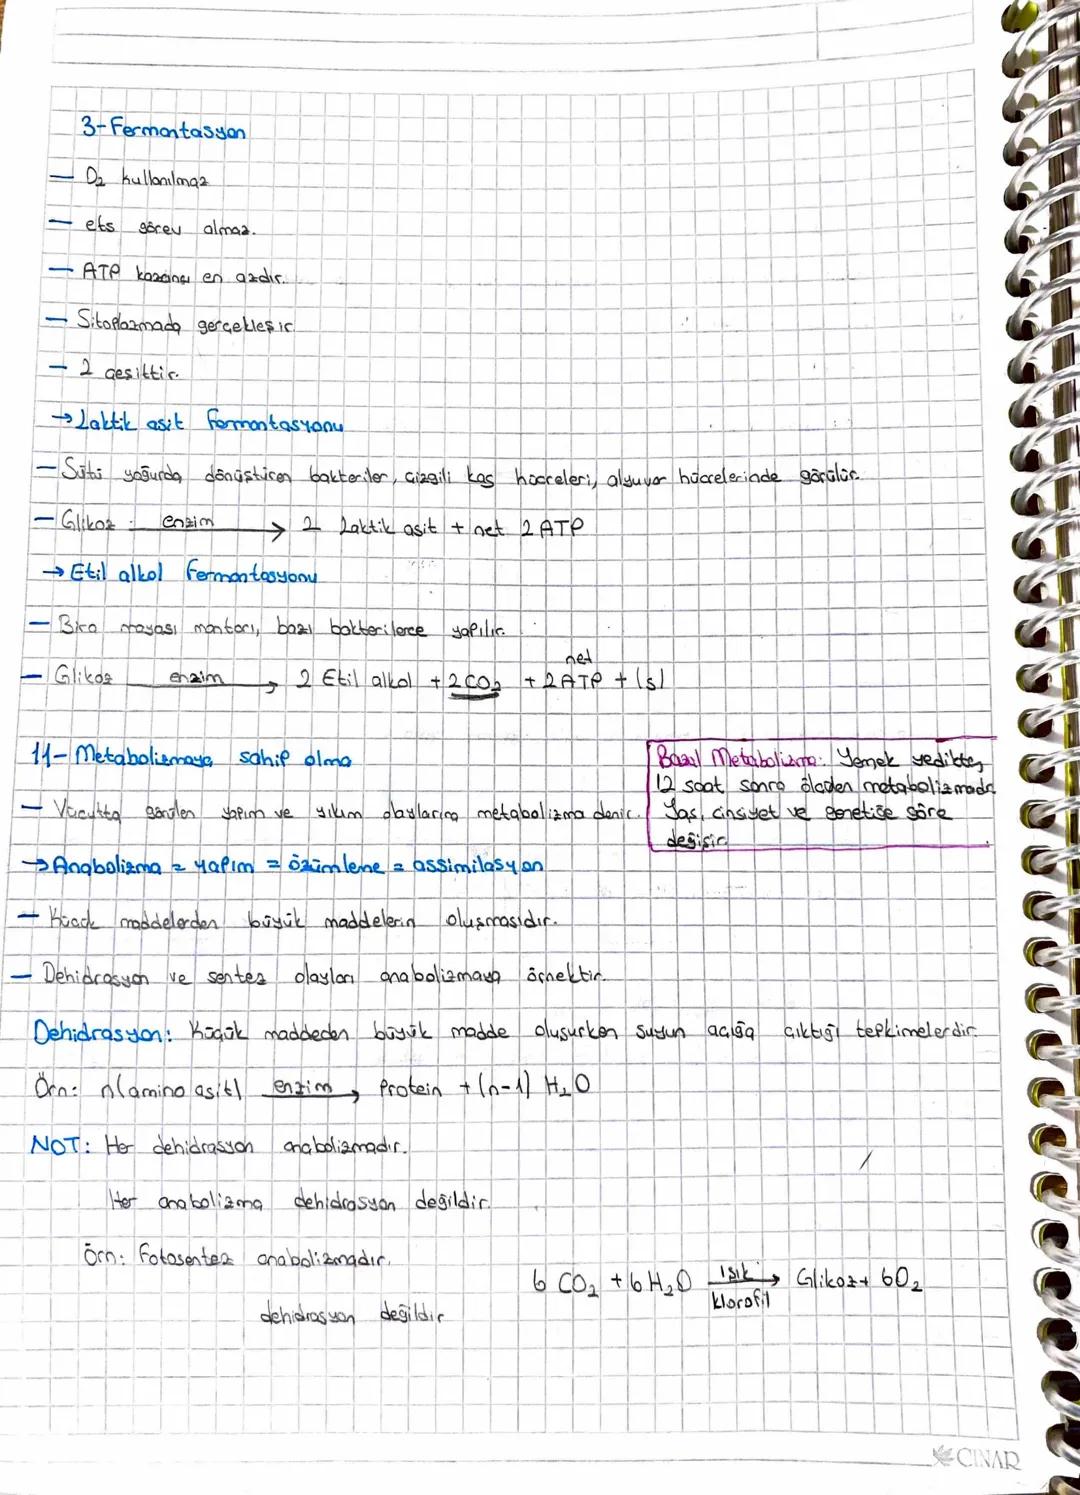 3-Fermantasyon
— O₂ kullanılmaz
— ets görev almaz.
— ATP kazancı en azdır.
— Sitoplazmada gerçekleşir.
— 2 çeşittir.
→ Laktik asit fermantasyonu
— Sütü yoğurda dönüştüren bakteriler, çizgili kas hücreleri, alyuvar hücrelerinde görülür.
— Glikoz enzim → 2 Laktik asit + net 2 ATP
→ Etil alkol fermantasyonu
— Bira mayası mantarı, bazı bakterilerce yapılır.
— Glikoz enzim → 2 Etil alkol + 2CO₂ + net 2ATP + ısı
11- Metabolizmaya sahip olma
— Vücutta görülen yapım ve yıkım olaylarına metabolizma denir.
Bazal Metabolizma: Yemek yedikten
12 saat sonra ölçülen metabolizmadır
Yaş, cinsiyet ve genetiğe göre
değişir.
→ Anabolizma = yapım = özümleme = assimilasyon
— Küçük maddelerden büyük maddelerin oluşmasıdır.
— Dehidrasyon ve sentez olayları anabolizmaya örnektir.
Dehidrasyon: Küçük maddeden büyük madde oluşurken suyun açığa çıktığı tepkimelerdir.
Örn: n(amino asit) enzim → Protein + (n-1) H₂O
NOT: Her dehidrasyon anabolizmadır.
Her anabolizma dehidrasyon değildir.
Örn: Fotosentez anabolizmadır.
dehidrasyon değildir
6 CO₂ + 6 H₂O ışık klorofil → Glikoz + 6O₂
ÇINAR